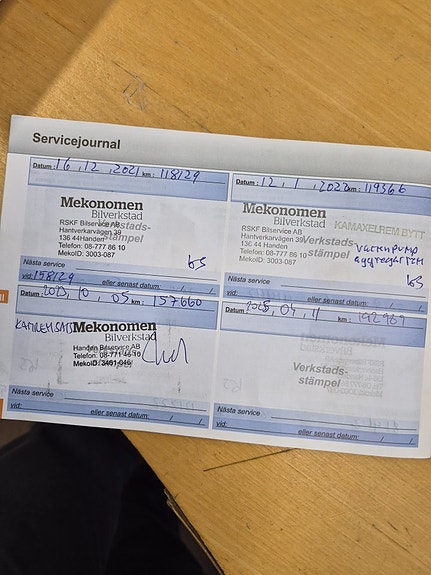 Servicejournal
Datum: 16, 12, 2021 km: 118129
Mekonomen
Bilverkstad
RSKF Bilservice AB
Hantverkarvägen 39
136 44 Handen
Telefon: 08-777 86 10
MekoID: 3003-087
Verkstads-
stämpel
Nästa service
vid: 158129 eller senast datum: / /
Datum: 12, 1, 2022 km: 119366
Mekonomen
Bilverkstad
KAMAXELREM BYTT
RSKF Bilservice AB
Hantverkarvägen 39
136 44 Handen
Telefon: 08-777 86 10
MekoID: 3003-087
Verkstads-
stämpel
vattenpump
aggregat rem
Nästa service
vid: eller senast datum: / /
Datum: 2023, 10, 05 km: 157660
KAMREMSATS
Mekonomen
Bilverkstad
Handen Bilservice AB
Telefon: 08-771 46 10
MekoID: 3461-046
Nästa service
vid: eller senast datum: / /
Datum: 2025, 04, 11 km: 192969
Verkstads-
stämpel
Nästa service
vid: eller senast datum: / /